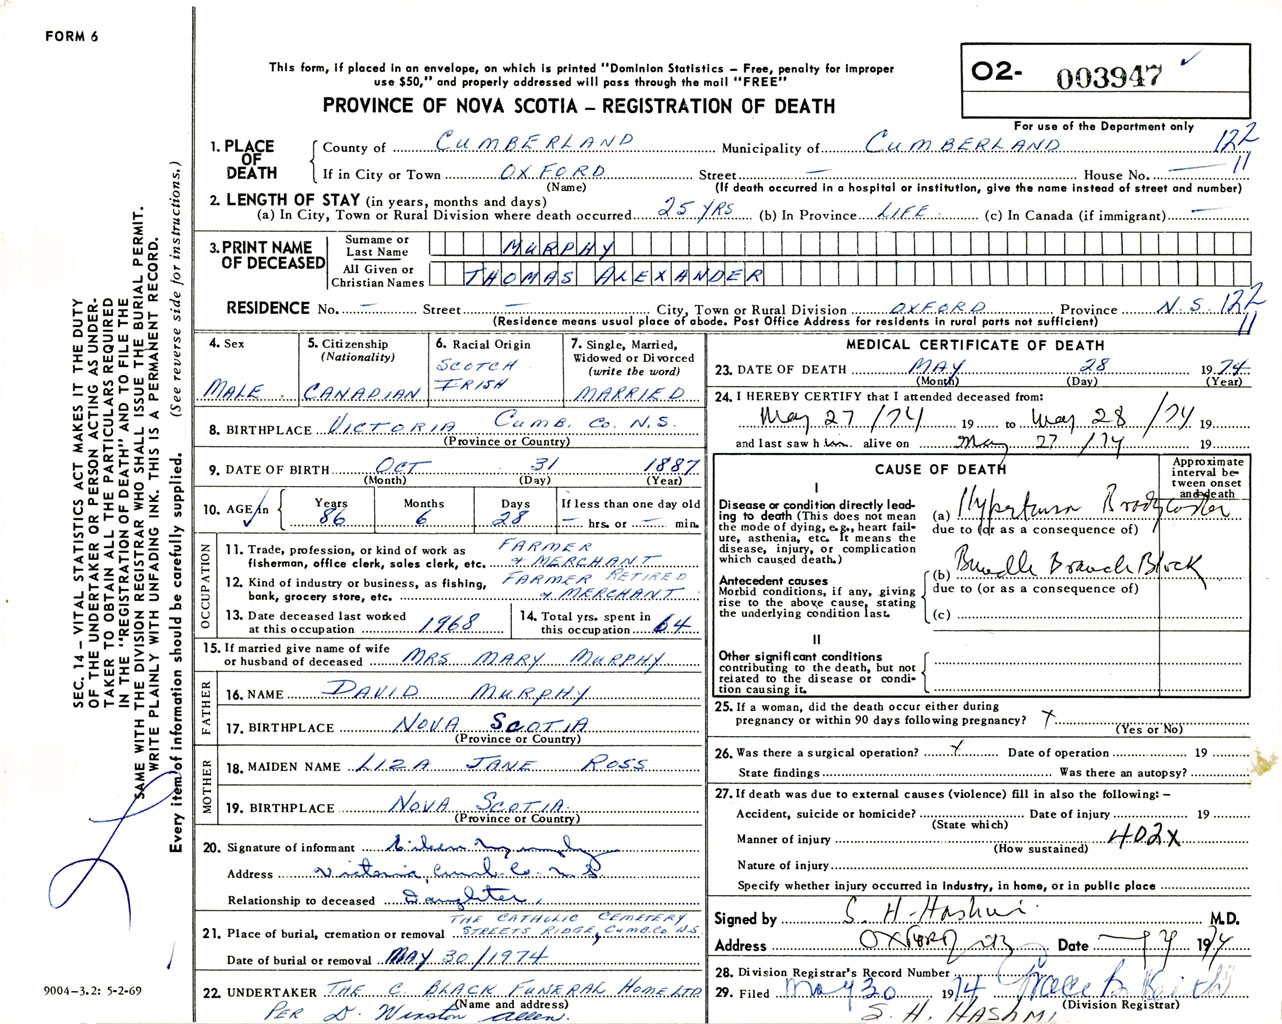 FORM 6
This form, if placed in an envelope, on which is printed "Dominion Statistics – Free, penalty for improper
use $50," and properly addressed will pass through the mail "FREE"
PROVINCE OF NOVA SCOTIA – REGISTRATION OF DEATH
O2- 003947
For use of the Department only
122
11
1. PLACE OF DEATH
County of CUMBERLAND Municipality of CUMBERLAND
If in City or Town OXFORD Street — House No. —
(Name) (If death occurred in a hospital or institution, give the name instead of street and number)
2. LENGTH OF STAY (in years, months and days)
(a) In City, Town or Rural Division where death occurred 25 YRS (b) In Province LIFE (c) In Canada (if immigrant) —
3. PRINT NAME OF DECEASED
Surname or Last Name MURPHY
All Given or Christian Names THOMAS ALEXANDER
RESIDENCE No. — Street — City, Town or Rural Division OXFORD Province N.S. 122
11
(Residence means usual place of abode. Post Office Address for residents in rural parts not sufficient)
4. Sex
MALE
5. Citizenship
(Nationality)
CANADIAN
6. Racial Origin
SCOTCH
IRISH
7. Single, Married,
Widowed or Divorced
(write the word)
MARRIED
8. BIRTHPLACE VICTORIA CUMB. CO. N.S.
(Province or Country)
9. DATE OF BIRTH OCT 31 1887
(Month) (Day) (Year)
10. AGE in
Years 86
Months 6
Days 28
If less than one day old
— hrs. or — min.
OCCUPATION
11. Trade, profession, or kind of work as
fisherman, office clerk, sales clerk, etc. FARMER
& MERCHANT
12. Kind of industry or business, as fishing,
bank, grocery store, etc. FARMER RETIRED
& MERCHANT
13. Date deceased last worked
at this occupation 1968
14. Total yrs. spent in
this occupation 64
15. If married give name of wife
or husband of deceased MRS MARY MURPHY
FATHER
16. NAME DAVID MURPHY
17. BIRTHPLACE NOVA SCOTIA
(Province or Country)
MOTHER
18. MAIDEN NAME LIZA JANE ROSS
19. BIRTHPLACE NOVA SCOTIA
(Province or Country)
20. Signature of informant Eileen Murphy
Address Victoria, Cumb. Co. N.S.
Relationship to deceased Daughter.
21. Place of burial, cremation or removal THE CATHOLIC CEMETERY
STREETS RIDGE, CUMB. CO. N.S.
Date of burial or removal MAY 30/1974
22. UNDERTAKER THE C. BLACK FUNERAL HOME LTD
(Name and address)
PER D. Winston Allen.
MEDICAL CERTIFICATE OF DEATH
23. DATE OF DEATH MAY 28 1974
(Month) (Day) (Year)
24. I HEREBY CERTIFY that I attended deceased from:
May 27/74 19 to May 28/74 19
and last saw him alive on May 27/74 19
CAUSE OF DEATH
Approximate
interval be-
tween onset
and death
I
Disease or condition directly lead-
ing to death (This does not mean
the mode of dying, e.g., heart fail-
ure, asthenia, etc. It means the
disease, injury, or complication
which caused death.)
(a)
due to (or as a consequence of)
Antecedent causes
Morbid conditions, if any, giving
rise to the above cause, stating
the underlying condition last.
(b) Bundle Branch Block
due to (or as a consequence of)
(c)
II
Other significant conditions
contributing to the death, but not
related to the disease or condi-
tion causing it.
25. If a woman, did the death occur either during
pregnancy or within 90 days following pregnancy? x
(Yes or No)
26. Was there a surgical operation? x Date of operation 19
State findings Was there an autopsy?
27. If death was due to external causes (violence) fill in also the following: –
Accident, suicide or homicide? Date of injury 19
(State which)
Manner of injury 402X
(How sustained)
Nature of injury
Specify whether injury occurred in industry, in home, or in public place
Signed by S. H. Hashmi M.D.
Address OXFORD Date 1974
28. Division Registrar's Record Number
29. Filed May 30 1974
(Division Registrar)
S. H. HASHMI
SEC. 14 – VITAL STATISTICS ACT MAKES IT THE DUTY
OF THE UNDERTAKER OR PERSON ACTING AS UNDER-
TAKER TO OBTAIN ALL THE PARTICULARS REQUIRED
IN THE "REGISTRATION OF DEATH" AND TO FILE THE
SAME WITH THE DIVISION REGISTRAR WHO SHALL ISSUE THE BURIAL PERMIT.
WRITE PLAINLY WITH UNFADING INK. THIS IS A PERMANENT RECORD.
Every item of information should be carefully supplied. (See reverse side for instructions.)
9004-3.2: 5-2-69